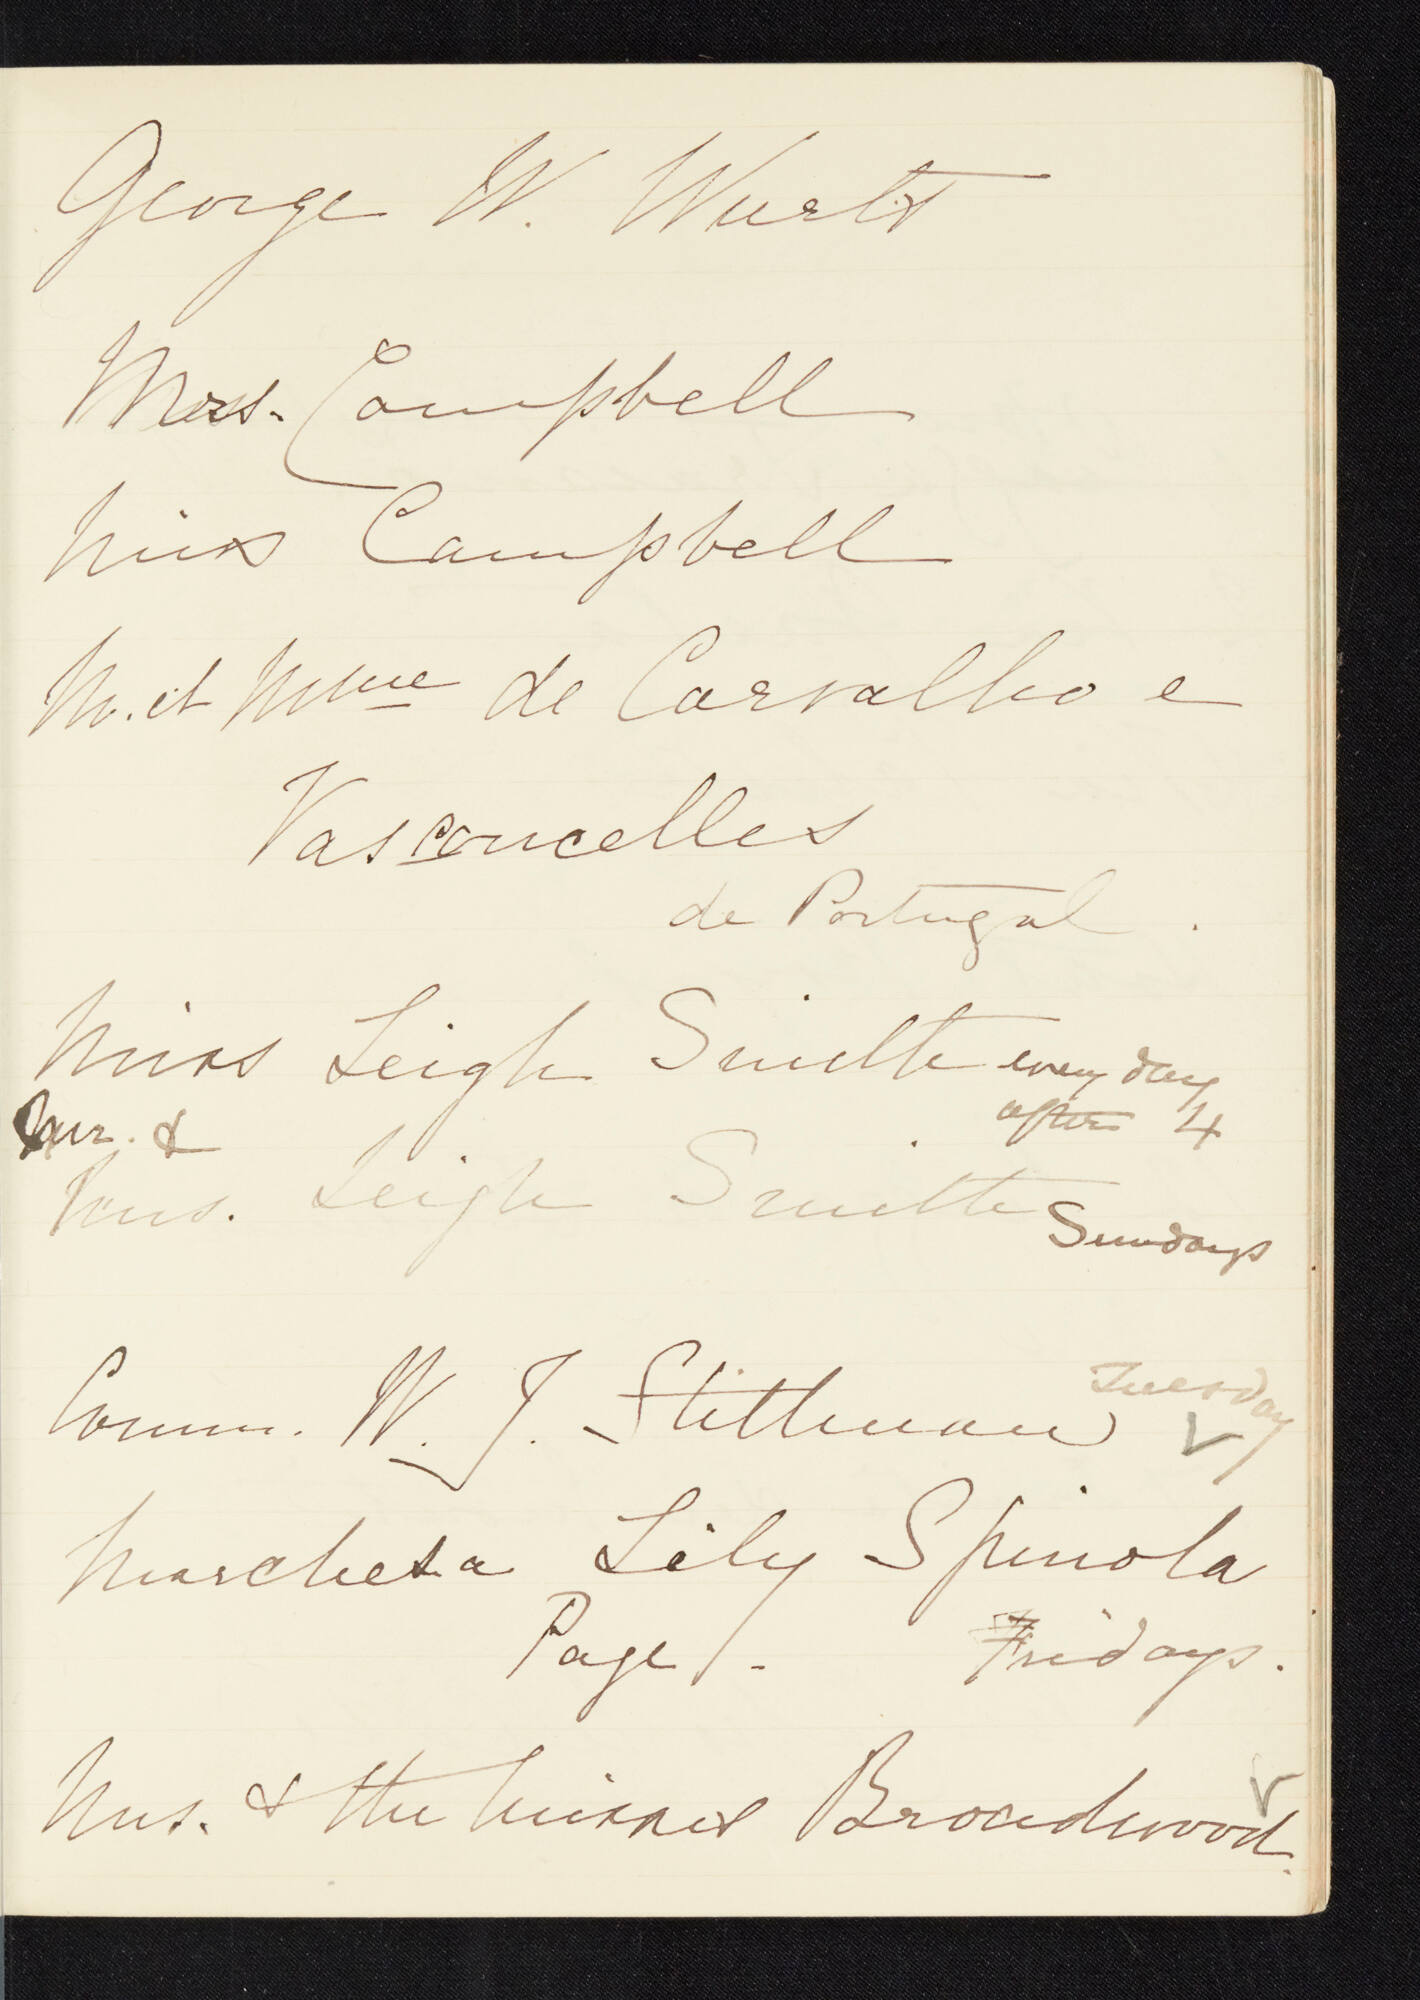 George W. Wurts
Mrs. Campbell
Miss Campbell
M. et Mme de Carvalho e
Vasconcelles
de Portugal.
Miss Leigh Smith every day
after 4
Mr. &
Mrs. Leigh Smith Sundays
Comm. W. J. Stillman Tuesday
Marchesa Lily Spinola
Page. Fridays.
Mrs. & the Misses Broadwood.